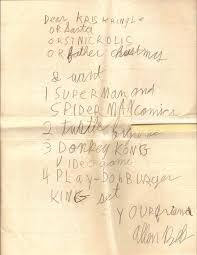 Dear KRIS KRINGLE
OR Santa
OR ST NICROLIC
OR father christmas
I want
1 SUPERMAN and
SPIDER MAN comics
2 turtle
3 DONKEY KONG
VIDEO game
4 PLAY-DOH BURGER
KING set
YOUR friend